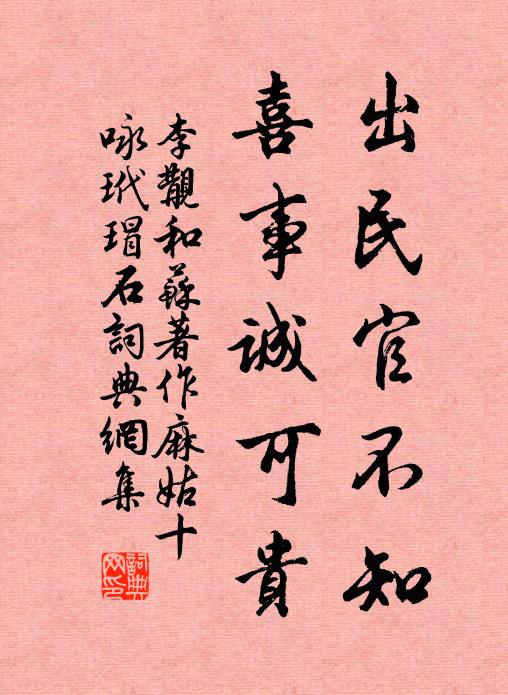 出民官不知
喜事誠可貴
李覯和蘇著作麻姑十
咏玳瑁石詞典網集
詞典网印